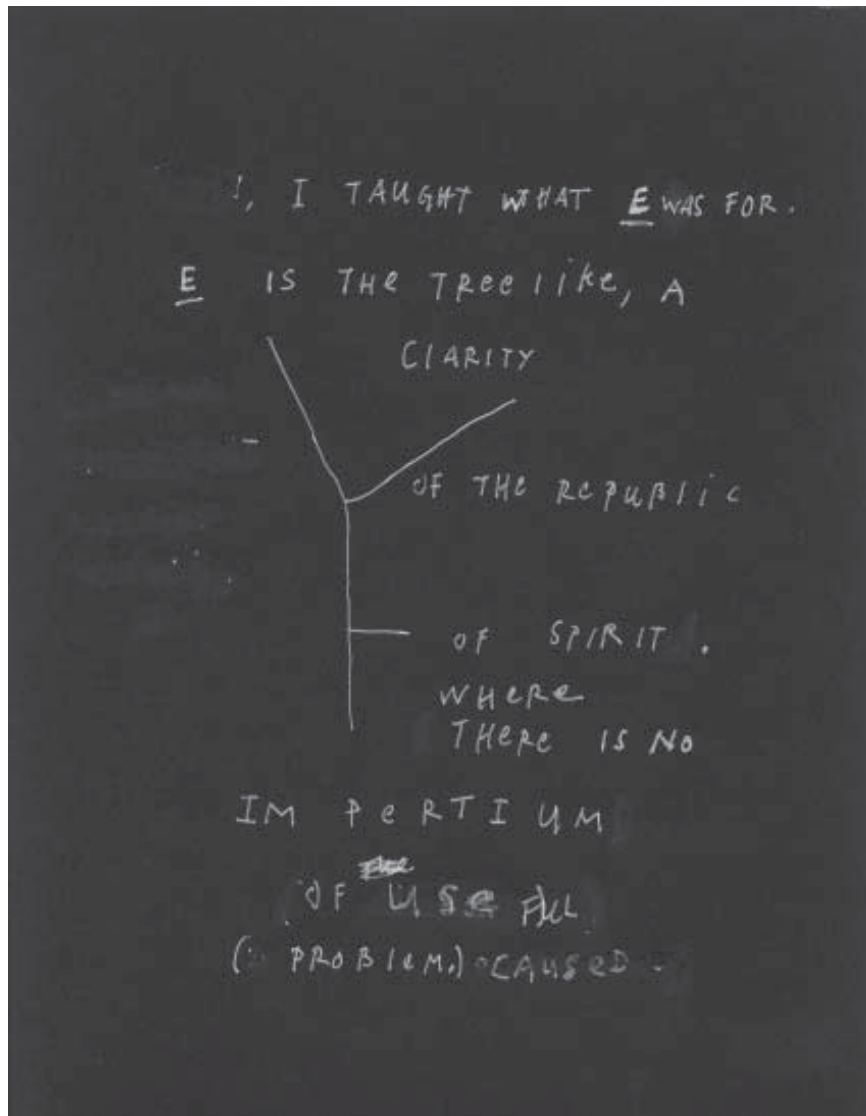 !, I TAUGHT WHAT E WAS FOR.
E IS THe TRee like, A
ClARITY
OF THe RepuBlic
OF SPIRIT.
WHeRe
THeRe IS NO
IM PeRTIUM
OF USe FUL
( PROBleM.) CAUSeD.